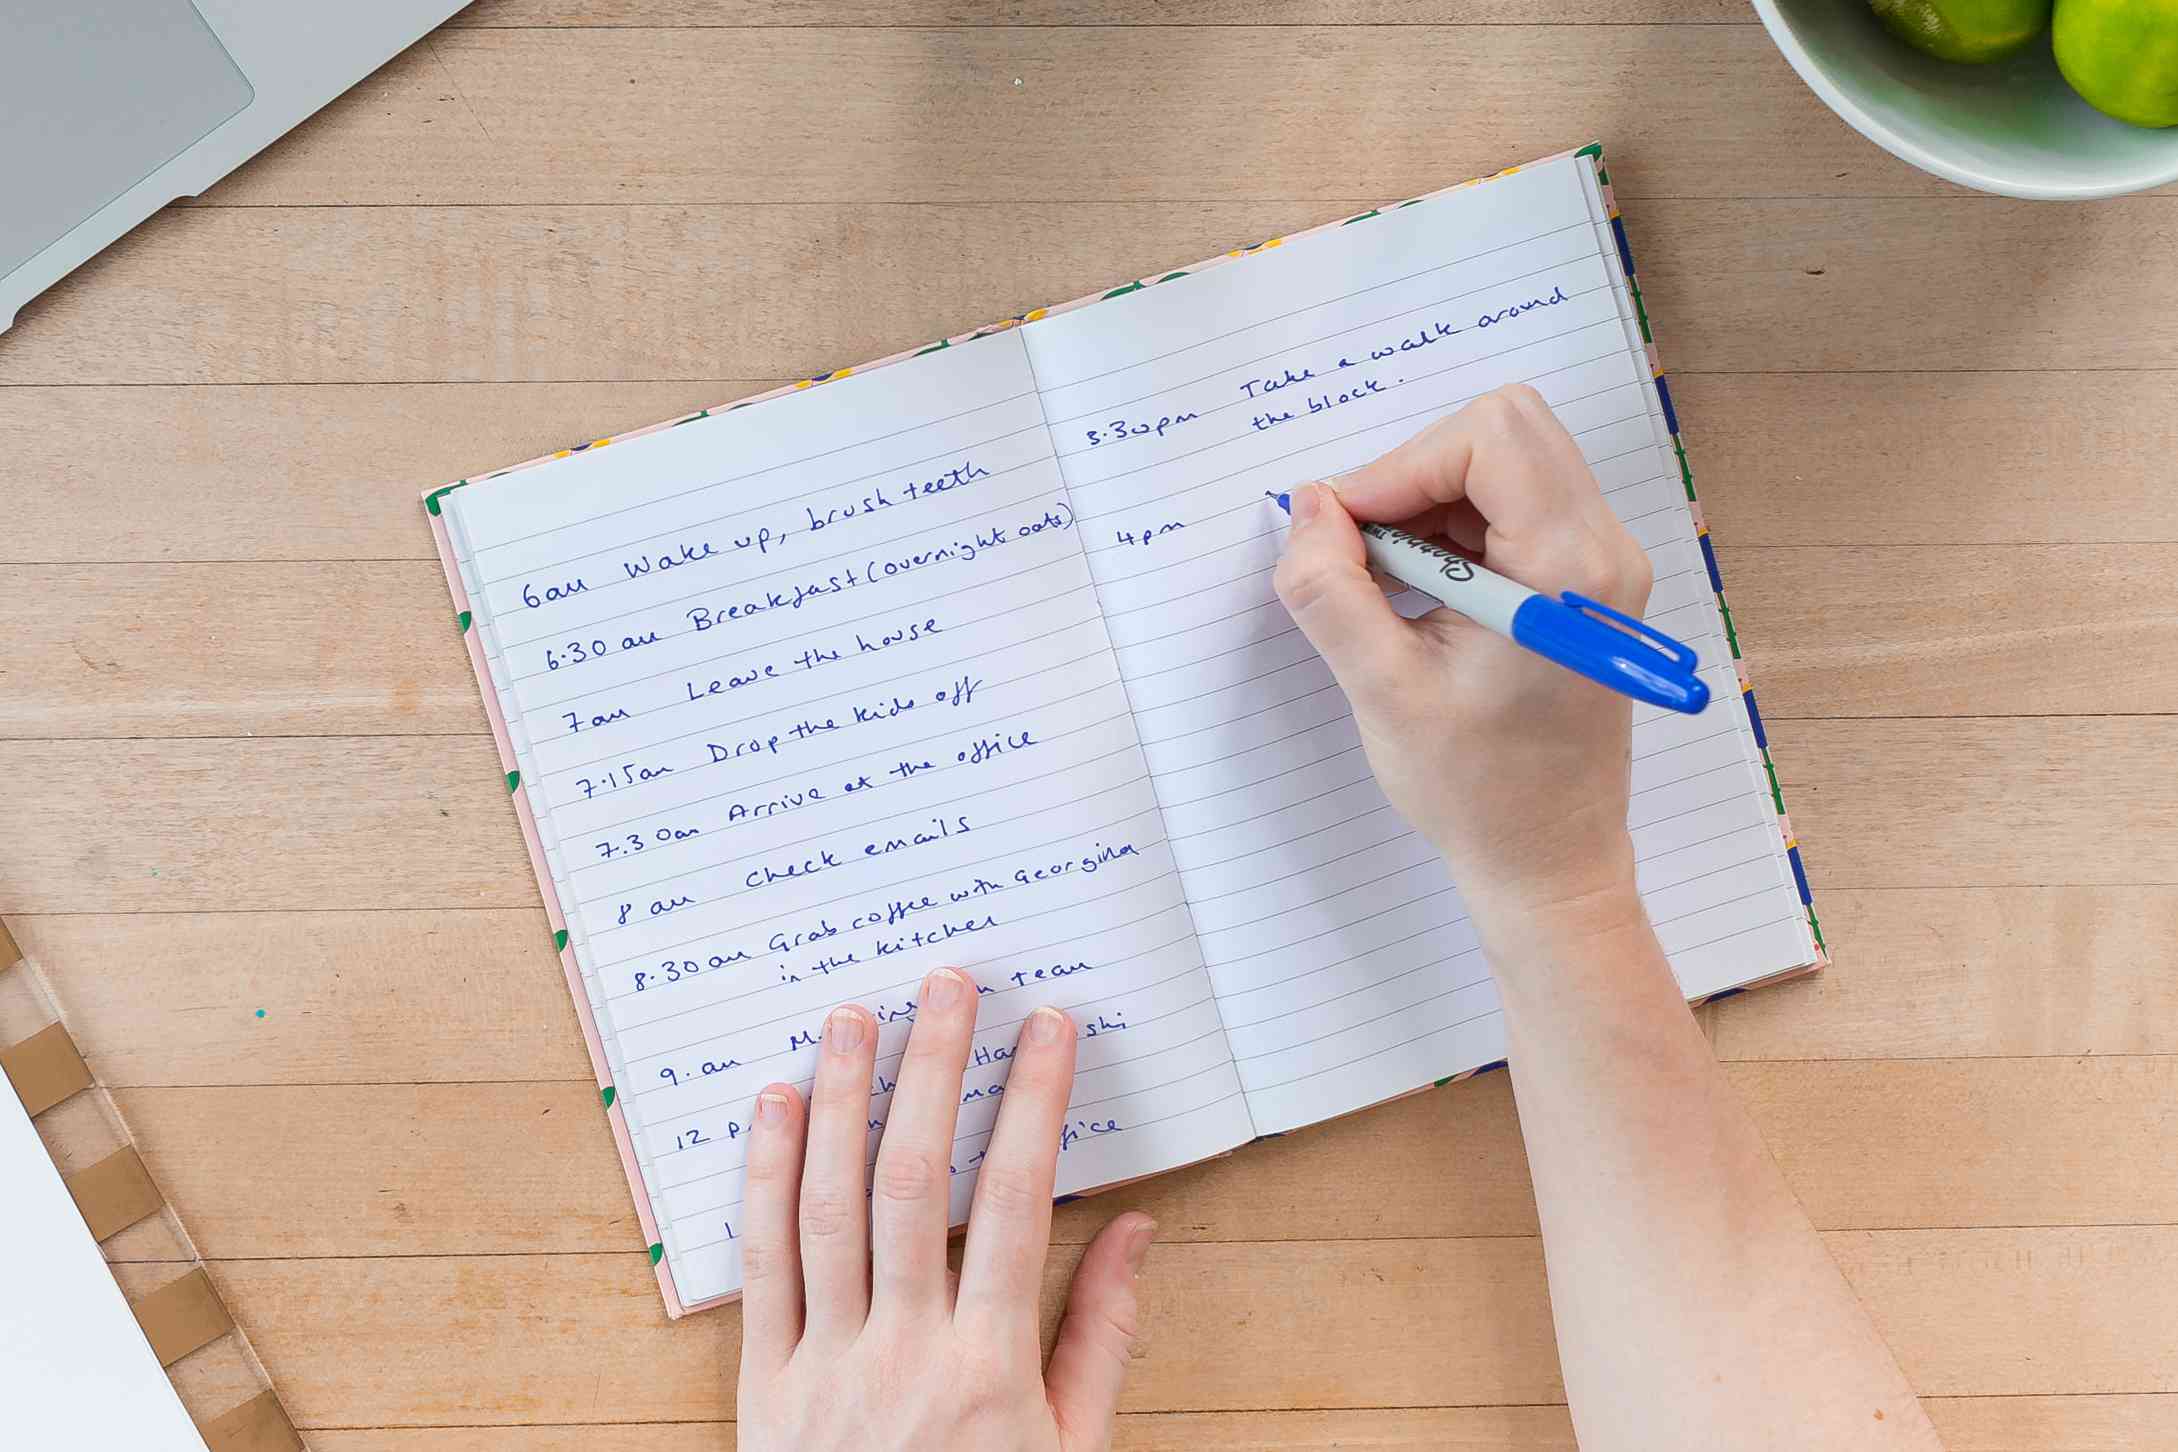 6am Wake up, brush teeth
6.30 am Breakfast (overnight oats)
7am Leave the house
7.15am Drop the kids off
7.30am Arrive at the office
8 am Check emails
8.30 am Grab coffee with Georgina
in the kitchen
9.am team
12
3.30pm Take a walk around
the block.
4pm
Sharpie